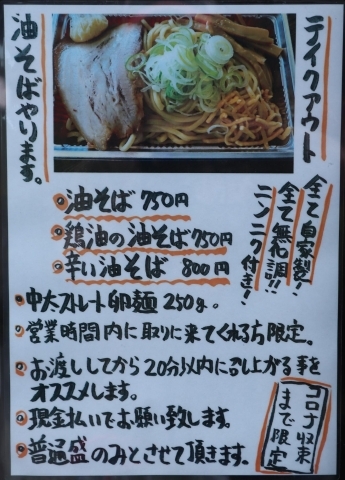 テイクアウト
油そばやります。
全て自家製!
全て無化調!!
ニンニク付き!
油そば 750円
鶏油の油そば750円
辛い油そば 800円
中太ストレート卵麺250g。
営業時間内に取りに来てくれる方限定。
お渡ししてから20分以内に召し上がる事を
オススメします。
現金払いでお願い致します。
普通盛のみとさせて頂きます。
コロナ収束
まで限定